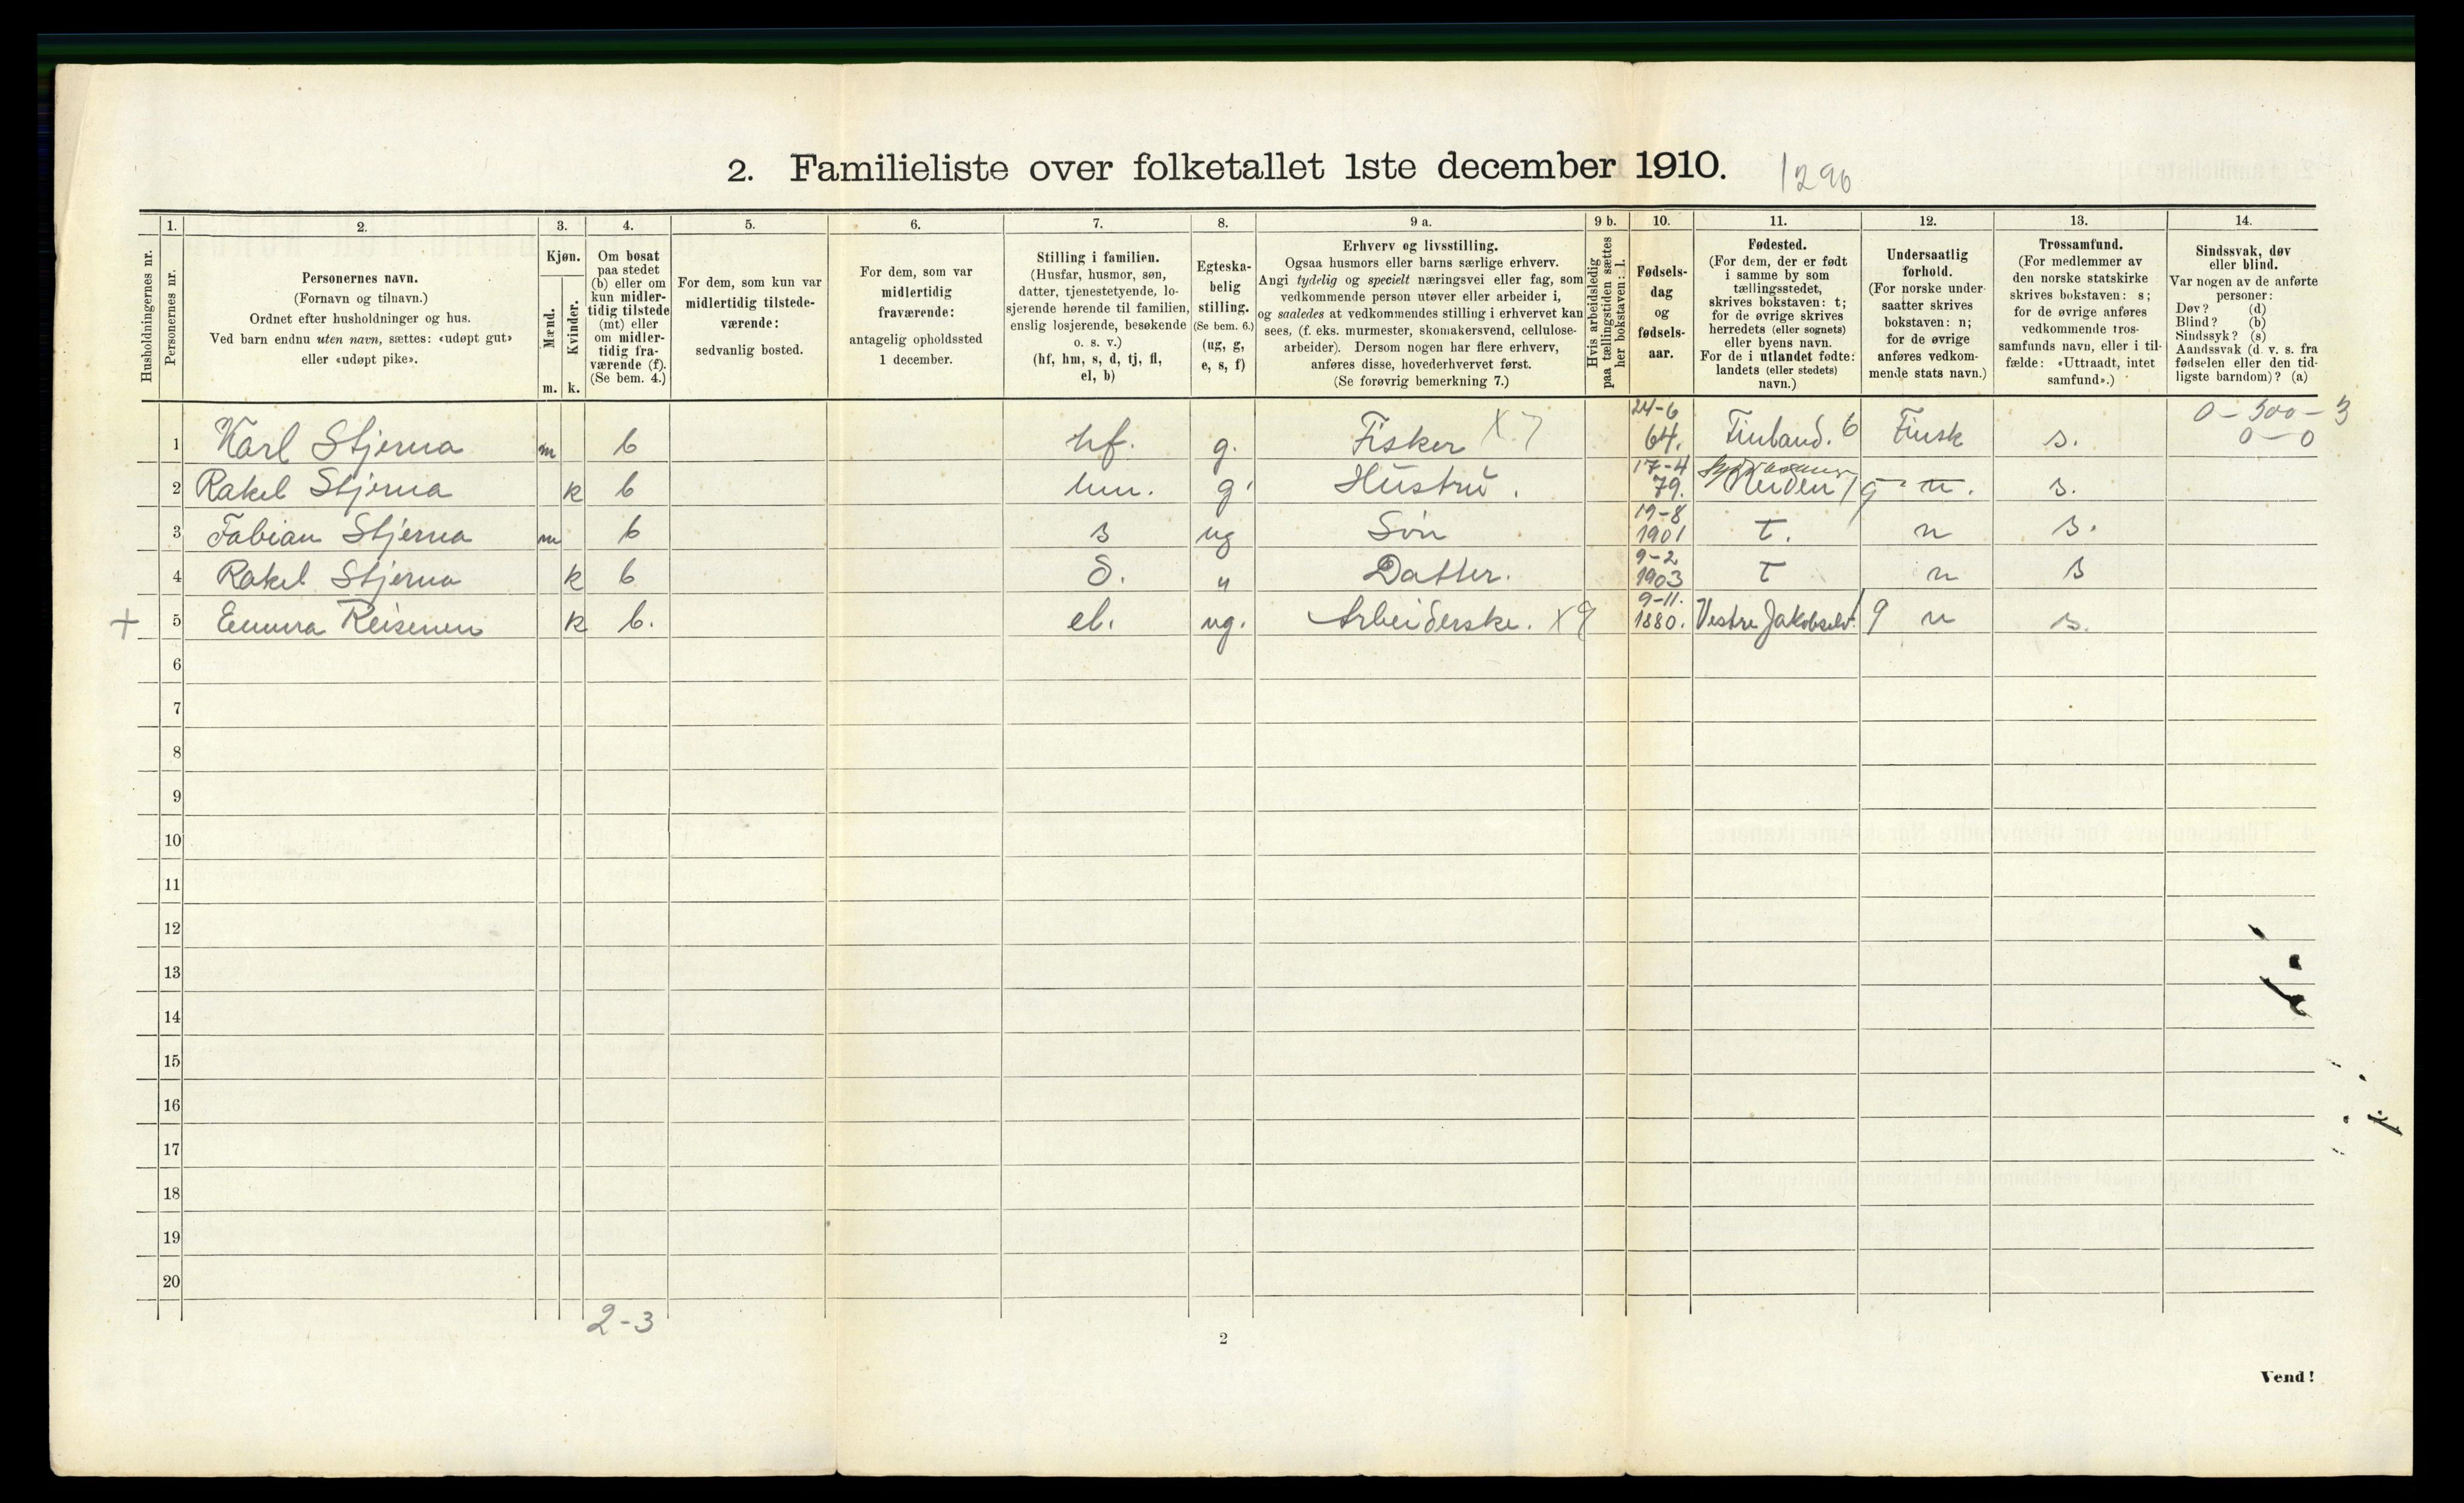 2. Familieliste over folketallet 1ste december 1910.
1290
Husholdningernes nr.
1.
Personernes nr.
2.
Personernes navn.
(Fornavn og tilnavn.)
Ordnet efter husholdninger og hus.
Ved barn endnu uten navn, sættes: «udøpt gut»
eller «udøpt pike».
3.
Kjøn.
Mænd.
Kvinder.
m. k.
4.
Om bosat
paa stedet
(b) eller om
kun midler-
tidig tilstede
(mt) eller
om midler-
tidig fra-
værende (f).
(Se bem. 4.)
5.
For dem, som kun var
midlertidig tilstede-
værende:
sedvanlig bosted.
6.
For dem, som var
midlertidig
fraværende:
antagelig opholdssted
1 december.
7.
Stilling i familien.
(Husfar, husmor, søn,
datter, tjenestetyende, lo-
sjerende hørende til familien,
enslig losjerende, besøkende
o. s. v.)
(hf, hm, s, d, tj, fl,
el, b)
8.
Egteska-
belig
stilling.
(Se bem. 6.)
(ug, g,
e, s, f)
9 a.
Erhverv og livsstilling.
Ogsaa husmors eller barns særlige erhverv.
Angi tydelig og specielt næringsvei eller fag, som
vedkommende person utøver eller arbeider i,
og saaledes at vedkommendes stilling i erhvervet kan
sees, (f. eks. murmester, skomakersvend, cellulose-
arbeider). Dersom nogen har flere erhverv,
anføres disse, hovederhvervet først.
(Se forøvrig bemerkning 7.)
9 b.
Hvis arbeidsledig
paa tællingstiden sættes
her bokstaven: l.
10.
Fødsels-
dag
og
fødsels-
aar.
11.
Fødested.
(For dem, der er født
i samme by som
tællingsstedet,
skrives bokstaven: t;
for de øvrige skrives
herredets (eller sognets)
eller byens navn.
For de i utlandet fødte:
landets (eller stedets)
navn.)
12.
Undersaatlig
forhold.
(For norske under-
saatter skrives
bokstaven: n;
for de øvrige
anføres vedkom-
mende stats navn.)
13.
Trossamfund.
(For medlemmer av
den norske statskirke
skrives bokstaven: s;
for de øvrige anføres
vedkommende tros-
samfunds navn, eller i til-
fælde: «Uttraadt, intet
samfund».)
14.
Sindssvak, døv
eller blind.
Var nogen av de anførte
personer:
Døv? (d)
Blind? (b)
Sindssyk? (s)
Aandssvak (d. v. s. fra
fødselen eller den tid-
ligste barndom)? (a)
24-6 0-300-3
1 Karl Stjerna m b hf. g. Fisker X 7 64. Finland. 6 Finsk s. 0-0
17-4
2 Rakel Stjerna k b hm. g. Hustru. 79. n. s.
19-8
3 Fabian Stjerna m b s ug Søn 1901 t. n s.
9-2
4 Rakel Stjerna k b d. " Datter. 1903 t n s
9-11.
+ 5 Emma Reisenen k b. el. ug. Arbeiderske. X9 1880. Vestre Jakobselv. 9 n s.
6
7
8
9
10
11
12
13
14
15
16
17
18
19
20
2-3
2
Vend!